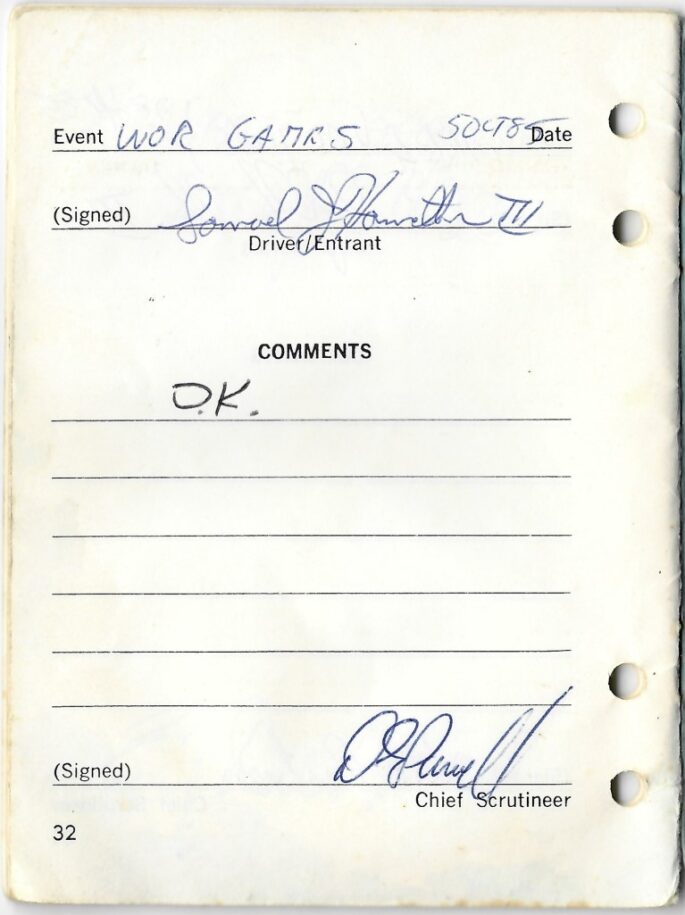 Event WOR GAMES 5OCT85 Date
(Signed) Samuel J Hamilton III
Driver/Entrant
COMMENTS
O.K.
(Signed)
Chief Scrutineer
32